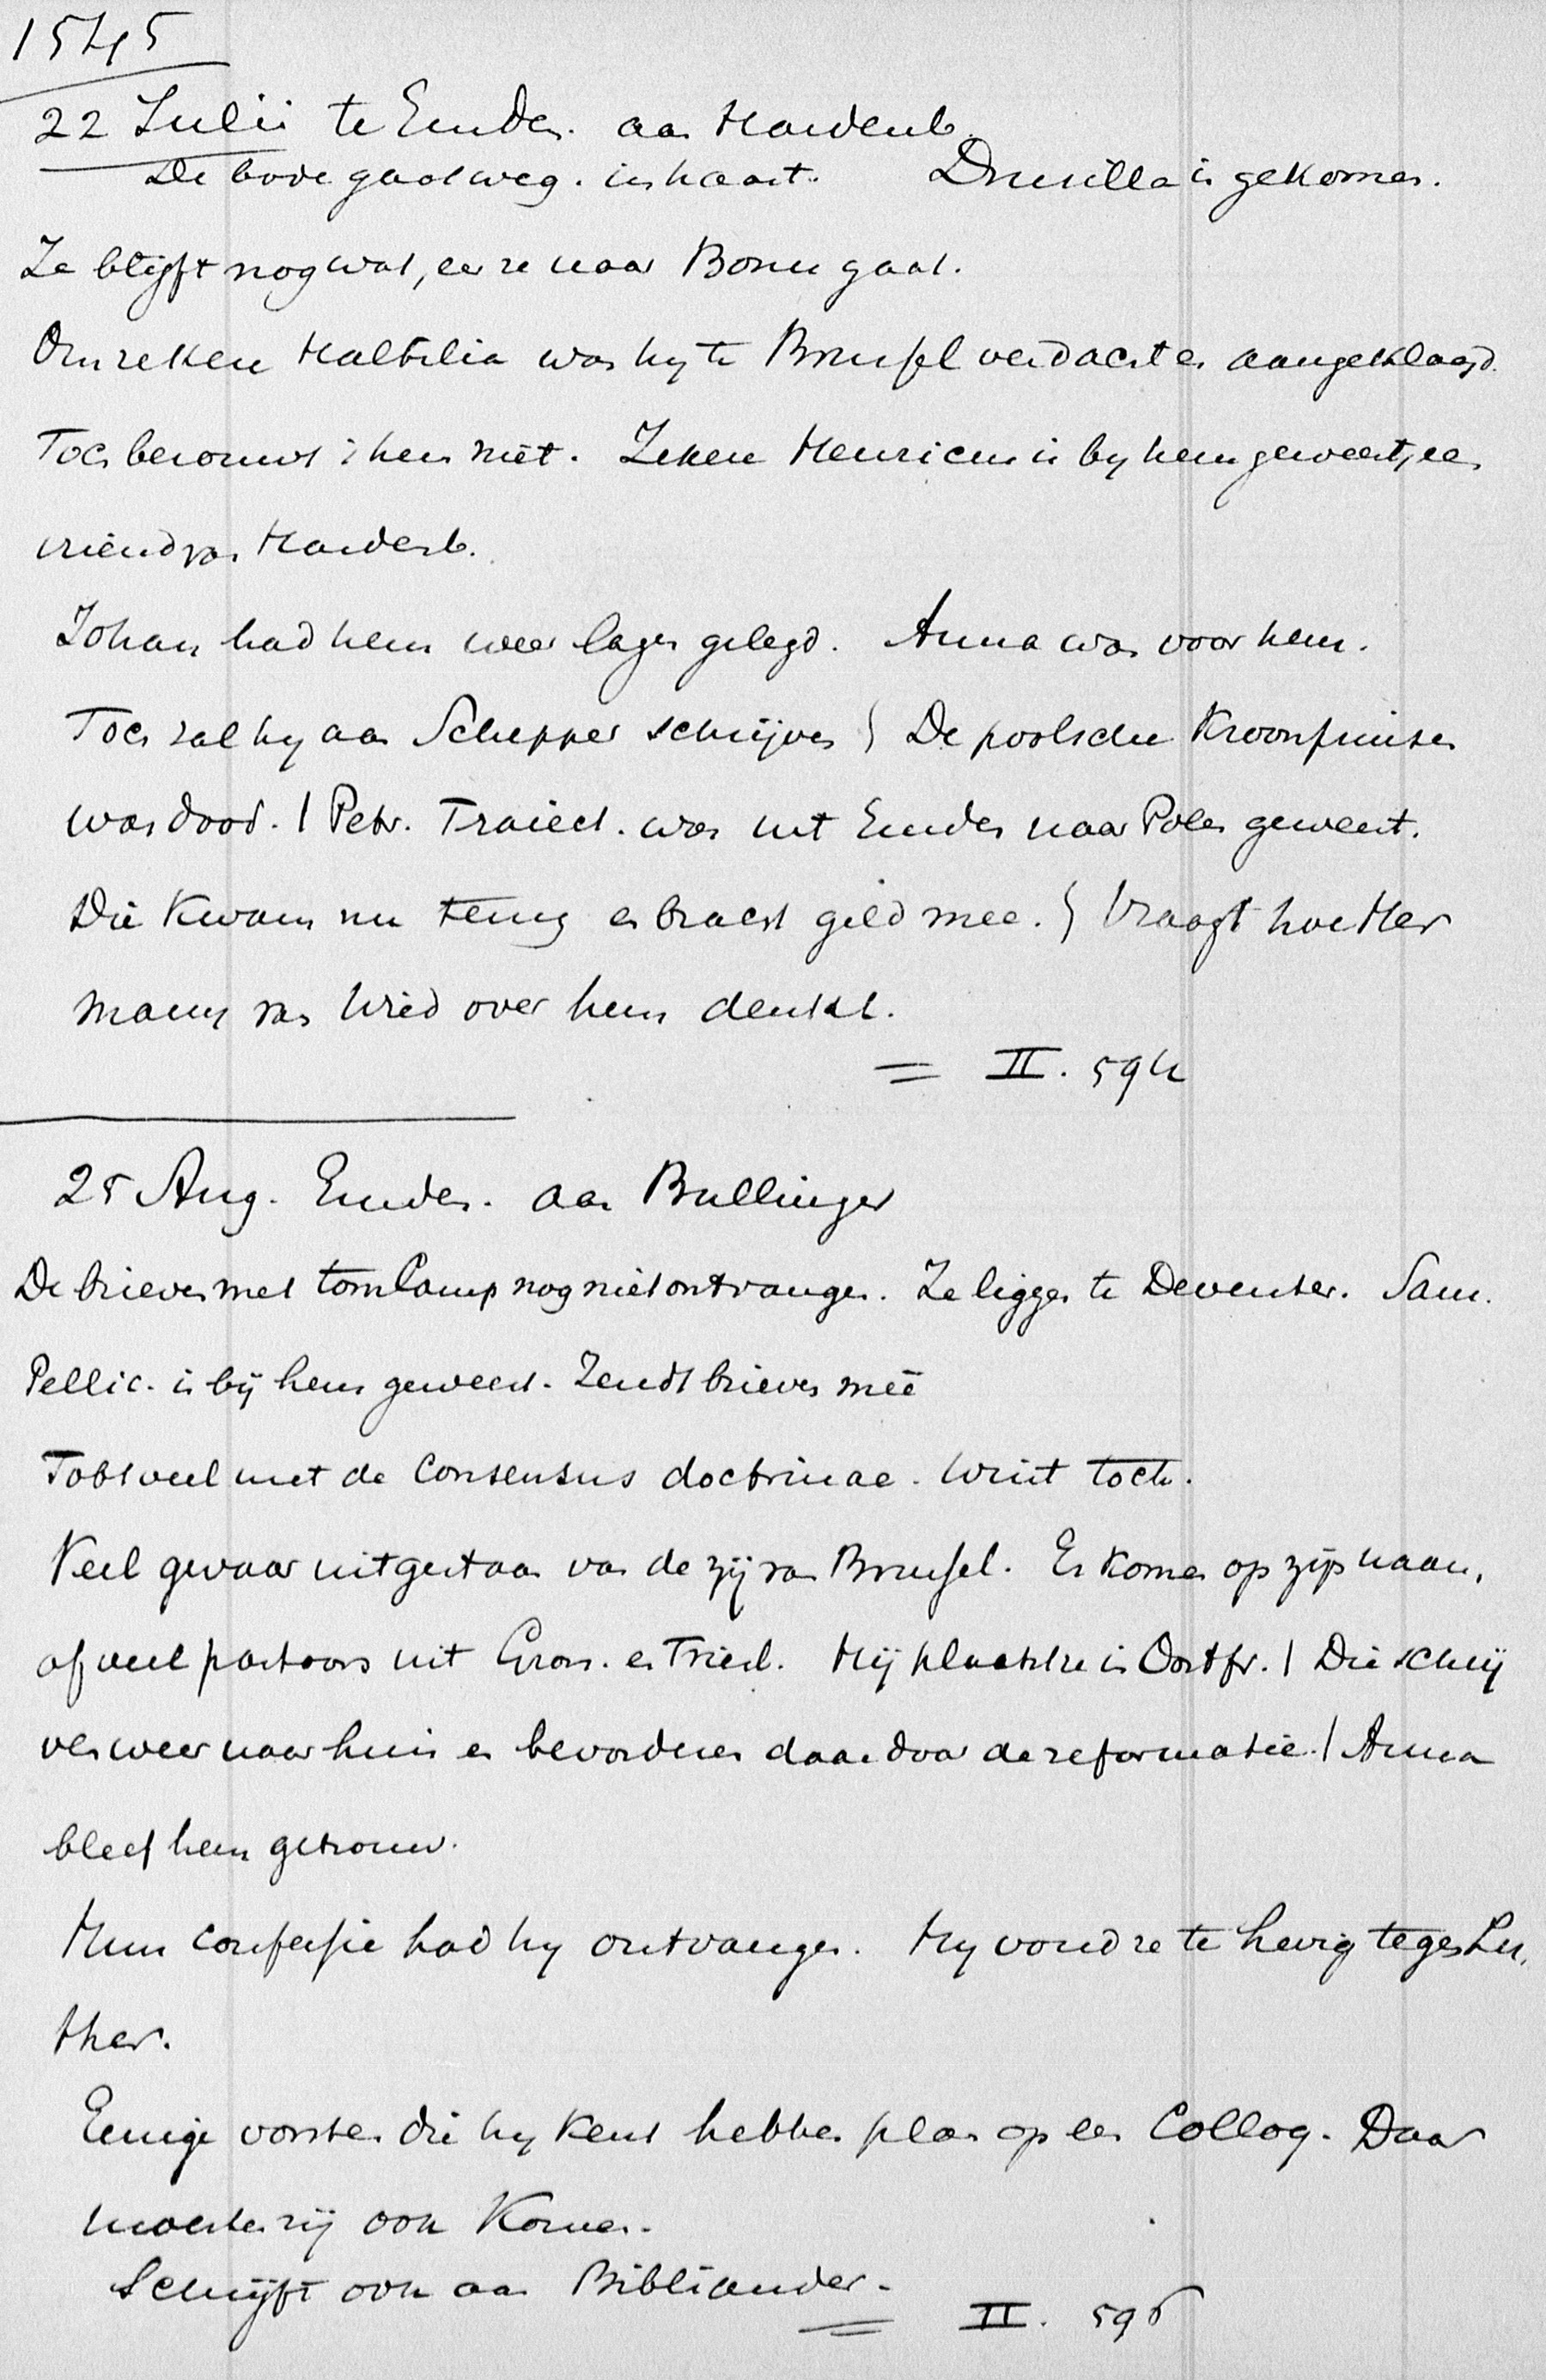 1545
22 Julii te Emden. aan Hardenb.
De bode gaat weg. in haast. Drusilla is gekomen.
Ze blijft nog wat, eer ze naar Bonn gaat.
Om zekere was hij te Brussel verdacht en aangeklaagd.
Toch berouwt 't hem niet. Zekere Henricus is bij hem geweest, een
vriend van Hardenb.
Johan had hem weer lagen gelegd. Anna was voor hem.
Toch zal hij aan Schepper schrijven | De poolsche Kroonprinses
was dood. | Petr. Traiect. was uit Emden naar Polen geweest.
Die kwam nu terug en bracht geld mee. | Vraagt hoe Her
mann van Wied over hem denkt.
= II. 594
25 Aug. Emden. aan Bullinger
De brieven met tom Camp nog niet ontvangen. Ze liggen te Deventer. Sam.
Pellic. is bij hem geweest. Zendt brieven meê
Tobt veel met de consensus doctrinae. Wint toch.
Veel gevaar uitgestaan van de zij van Brussel. Er komen op zijn naam,
of veel pastoors uit Gron. en Friesl. Hij plaatst ze in Oostfr. | Die schrij
ven weer naar huis en bevorderen daardoor de reformatie. | Anna
bleef hem getrouw.
Hun confessie had hij ontvangen. Hij vond ze te hevig tegen Lu,
ther.
Eenige vorsten die hij kent hebben plan op een Colloq. Daar
moesten zij ook komen.
Schrijft ook aan Bibliander.
= II. 596